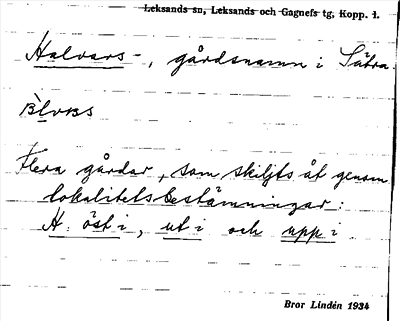 Leksands sn, Leksands och Gagnefs tg, Kopp. l.
Halvars-, gårdsnamn i Sätra.
Flera gårdar, som skiljts åt genom
lokalitetsbestämningar:
H. öst i, ut i och upp i
Bror Lindén 1934